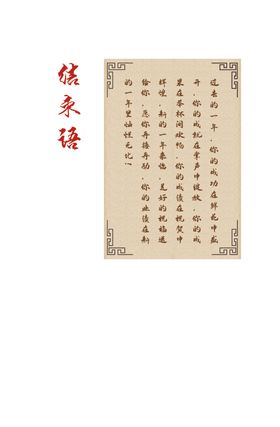 结束语
过去的一年，你的成功在鲜花中盛
开，你的成就在掌声中绽放，你的成
果在举杯间欢畅，你的成绩在祝贺中
辉煌，新的一年来临，美好的祝福送
给你，愿你再接再励，你的业绩在新
的一年里无比！